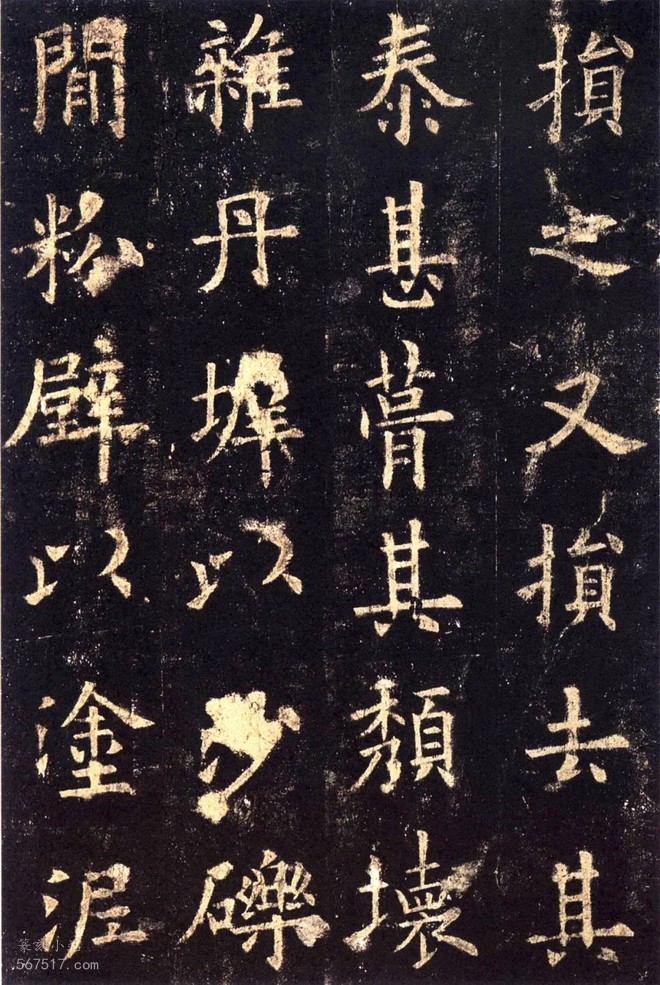 損之又損去其
泰甚葺其頽壞
雜丹墀以沙礫
閒粉壁以塗泥
.567517.com